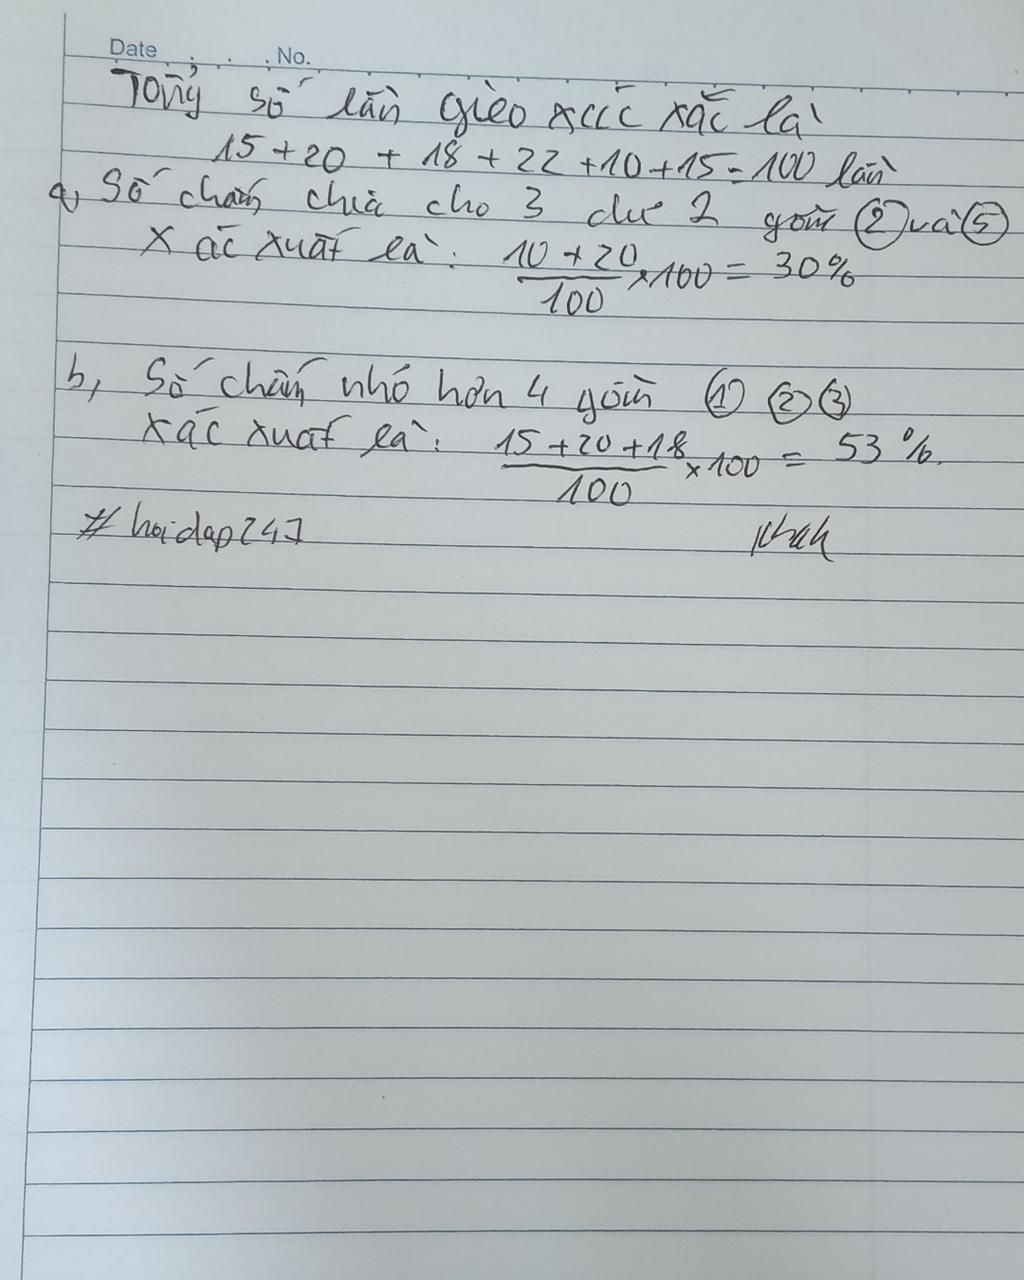 Date No.
Tổng số lần gieo xúc xắc là
15 + 20 + 18 + 22 + 10 + 15 = 100 lần
a, Số chấm chia cho 3 dư 2 gồm ② và ⑤
Xác xuất là: (10 + 20)/100 × 100 = 30%
b, Số chấm nhỏ hơn 4 gồm ① ② ③
xác xuất là: (15 + 20 + 18)/100 × 100 = 53 %.
# hoidap247